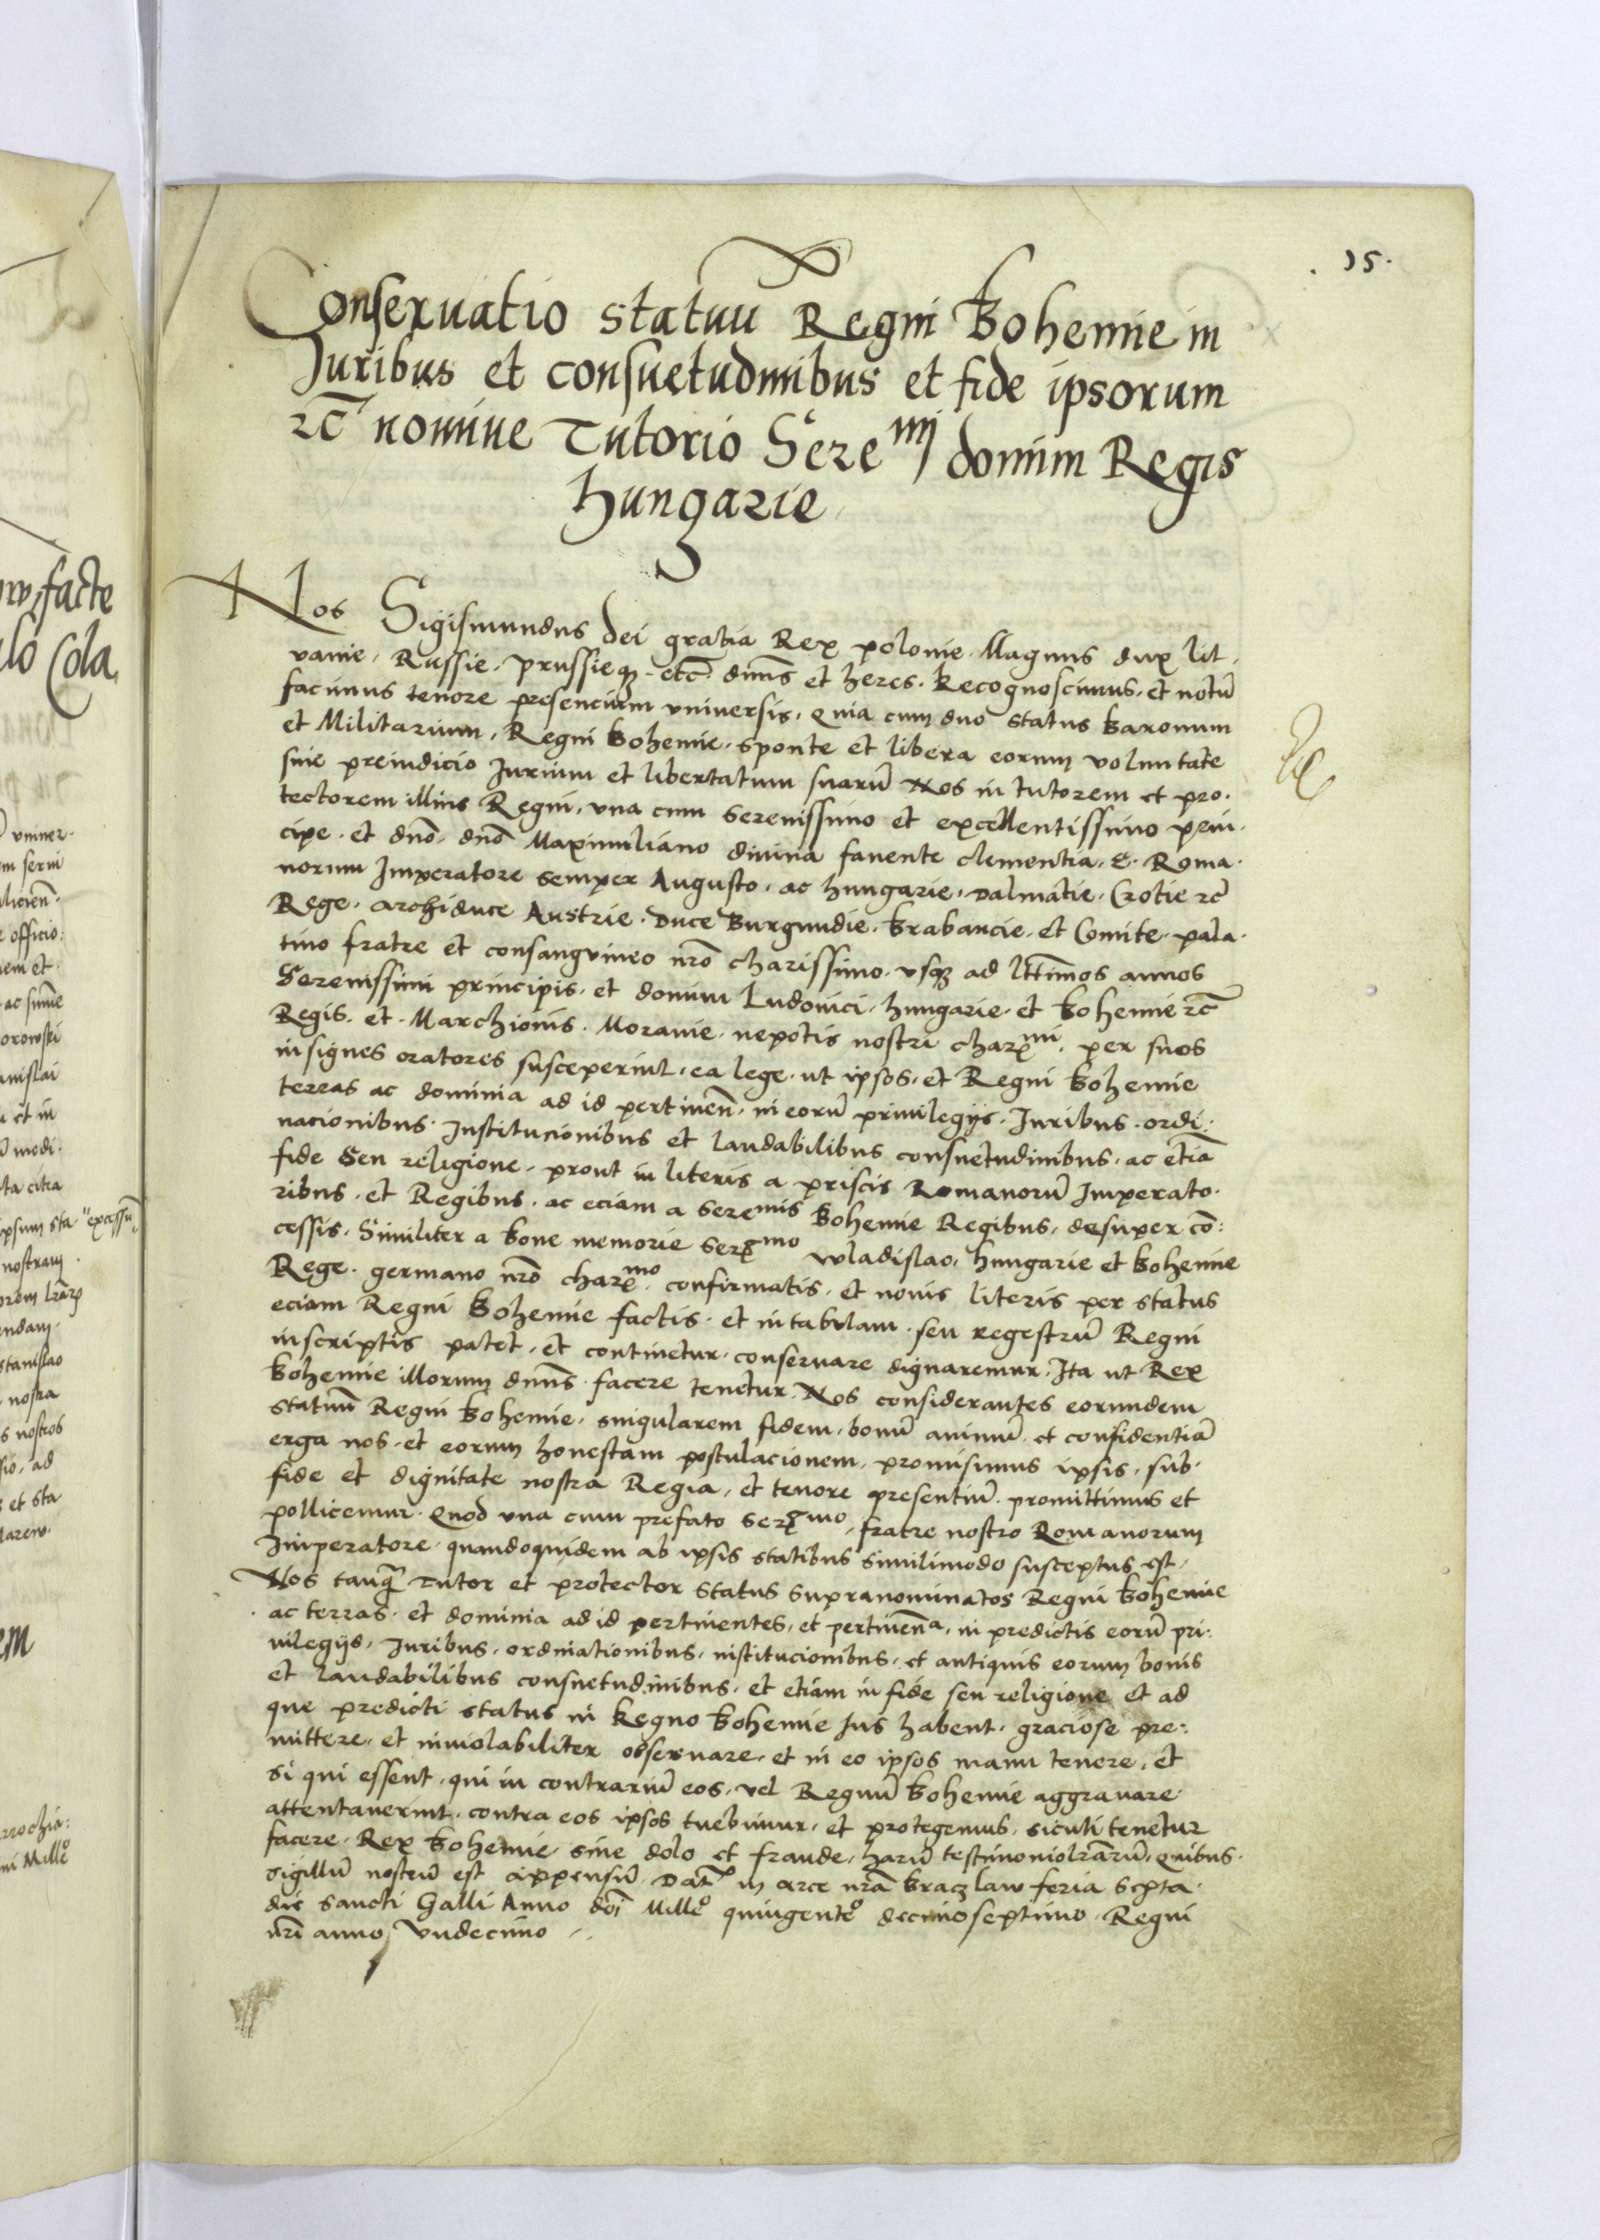 15.
Conseruatio statuū Regni Bohemie in
Juribus et consuetudinibus et fide ipsorum
rc̄ nomine Tutorio Sereᵐⁱ domini Regis
hungarie
Nos Sigismundus dei gratia Rex polonie. Magnus dux lit-
vanie, Russie, prussieqꝫ etc̄ dnūs et heres. Recognoscimus, et notū
facimus tenore presencium vniversis, Quia cum duo status baronum
et Militarium, Regni bohemie, sponte et libera eorum voluntate
sine preiudicio Jurium et libertatum suarū Nos in tutorem et pro-
tectorem illius Regni, vna cum Serenissimo et excellentissimo prin-
cipe et dnō dnō Maximiliano divina fauente clementia, E. Roma-
norum Imperatore semper Augusto, ac hungarie, dalmatie, Crotie rc̄
Rege, archiduce Austrie, Duce Burgundie, brabancie, et Comite pala-
tino fratre et consangvineo nrō charissimo, vsqꝫ ad lttīmos annos
Serenissimi principis, et domini Ludovici, hungarie, et bohemie rc̄
Regis, et Marchionis, Moravie, nepotis nostri charᵐⁱ, per suos
insignes oratores susceperint, ea lege, ut ipsos, et Regni bohemie
terras ac dominia ad id pertinen̄, in eorū priuilegijs, Juribus, ordi-
nacionibus, Institucionibus et laudabilibus consuetudinibus, ac etiā
fide Seu religione, prout in literis a priscis Romanorū Imperato-
ribus, et Regibus, ac eciam a Sereᵐⁱˢ Bohemie Regibus, desuper cō-
cessis, Similiter a bone memorie Serᵐᵒ Wladislao, hungarie et bohemie
Rege, germano nrō charᵐᵒ, confirmatis, et novis literis per status
eciam Regni bohemie factis, et in tabulam, seu regestrū Regni
inscriptis patet, et continetur, conseruare dignaremur, Ita ut Rex
bohemie illorum dnūs facere tenetur. Nos considerantes eorundem
statuū Regni bohemie, singularem fidem, bonū animū et confidentiā
erga nos, et eorum honestam postulacionem, promisimus ipsis, sub
fide et dignitate nostra Regia, et tenore presentiū promittimus et
pollicemur, Quod vna cum prefato Serᵐᵒ, fratre nostro Romanorum
Imperatore, quandoquidem ab ipsis statibus similimodo susceptus est,
Nos tanq̄ Tutor et protector status supranominatos Regni bohemie
ac terras, et dominia ad id pertinentes, et pertinen̄ᵃ, in predictis eorū pri-
uilegijs, Juribus, ordinationibus, institucionibus, et antiquis eorum bonis
et laudabilibus consuetudinibus, et etiam in fide seu religione et ad
que predicti status in Regno bohemie Jus habent, graciose pre-
mittere, et inviolabiliter observare, et in eo ipsos manu tenere, et
si qui essent, qui in contrariū eos, vel Regnū bohemie aggravare
attentaverint, contra eos ipsos tuebimur, et protegemus, siculi tenetur
facere Rex bohemie, sine dolo et fraude, harū testimonio lrārū, quibus
sigillū nostrū est appensū. Dat̄ in arce nrā braczlaw feria sexta
die Sancti Galli Anno doī Milleᵒ quingenteᵒ decimoseptimo. Regni
nrī anno Vndecimo